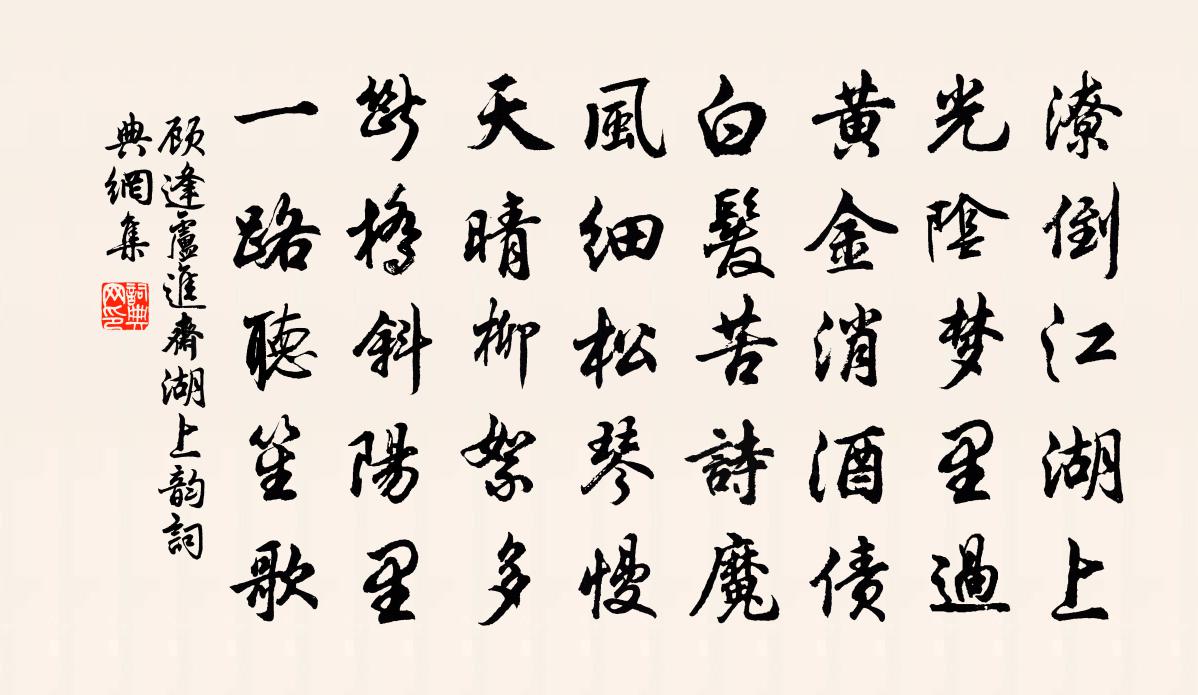 潦倒江湖上
光陰梦里過
黄金消酒债
白髮苦詩魔
風細松琴慢
天晴柳絮多
斷橋斜陽里
一路聽笙歌
顾逢盧進齋湖上韵詞
典網集
詞典
网印